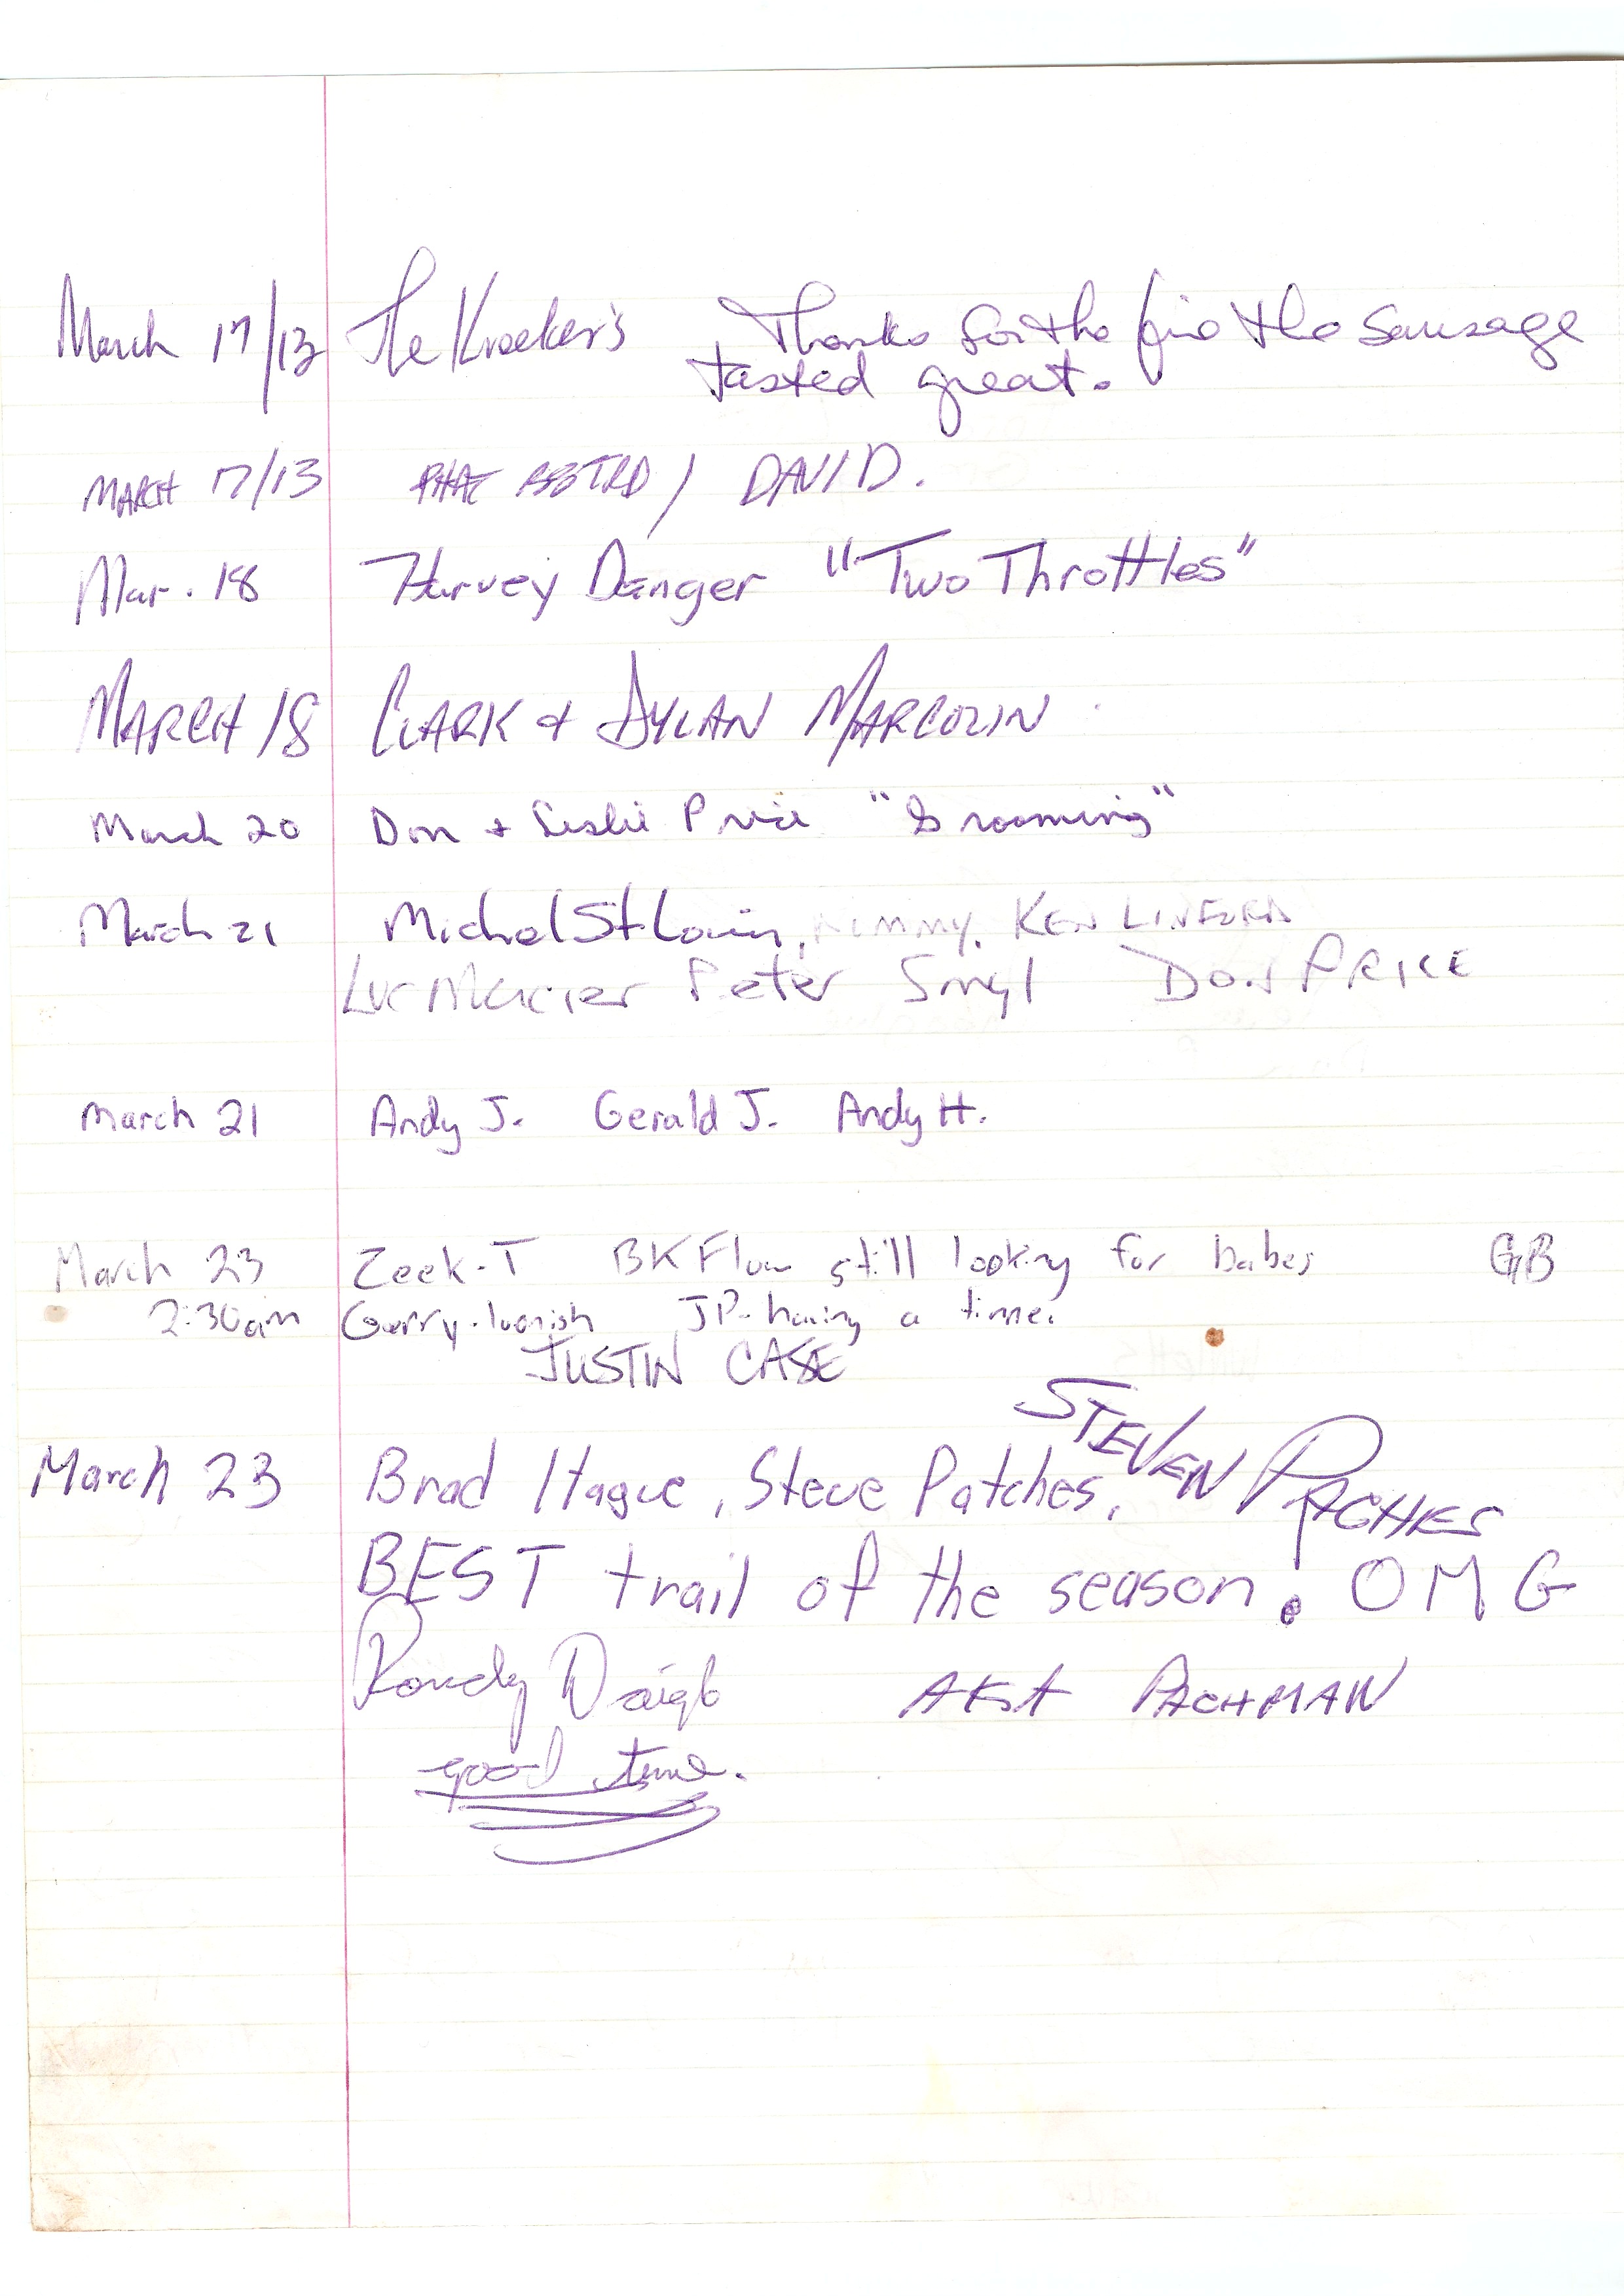 March 17/13 The Kroeker's Thanks for the fire the Sausage
tasted great.
MARCH 17/13 PHAT / DAVID.
Mar. 18 Harvey Danger "Two Throttles"
MARCH 18 CLARK & DYLAN MARCOLIN
March 20 Don + Leslie Price "Grooming"
March 21 Michel St. Louis, KEN LINFORD
Luc Mercier Peter Smyl DON PRICE
March 21 Andy J. Gerald J. Andy H.
March 23 Zeek-T BK Flow still looking for babes GB
2:30am Gerry. JP-having a time.
JUSTIN CASE
STEVEN PACHES
March 23 Brad Hague, Steve Patches,
BEST trail of the season. OMG
Daigle AKA PACHMAN
good time.